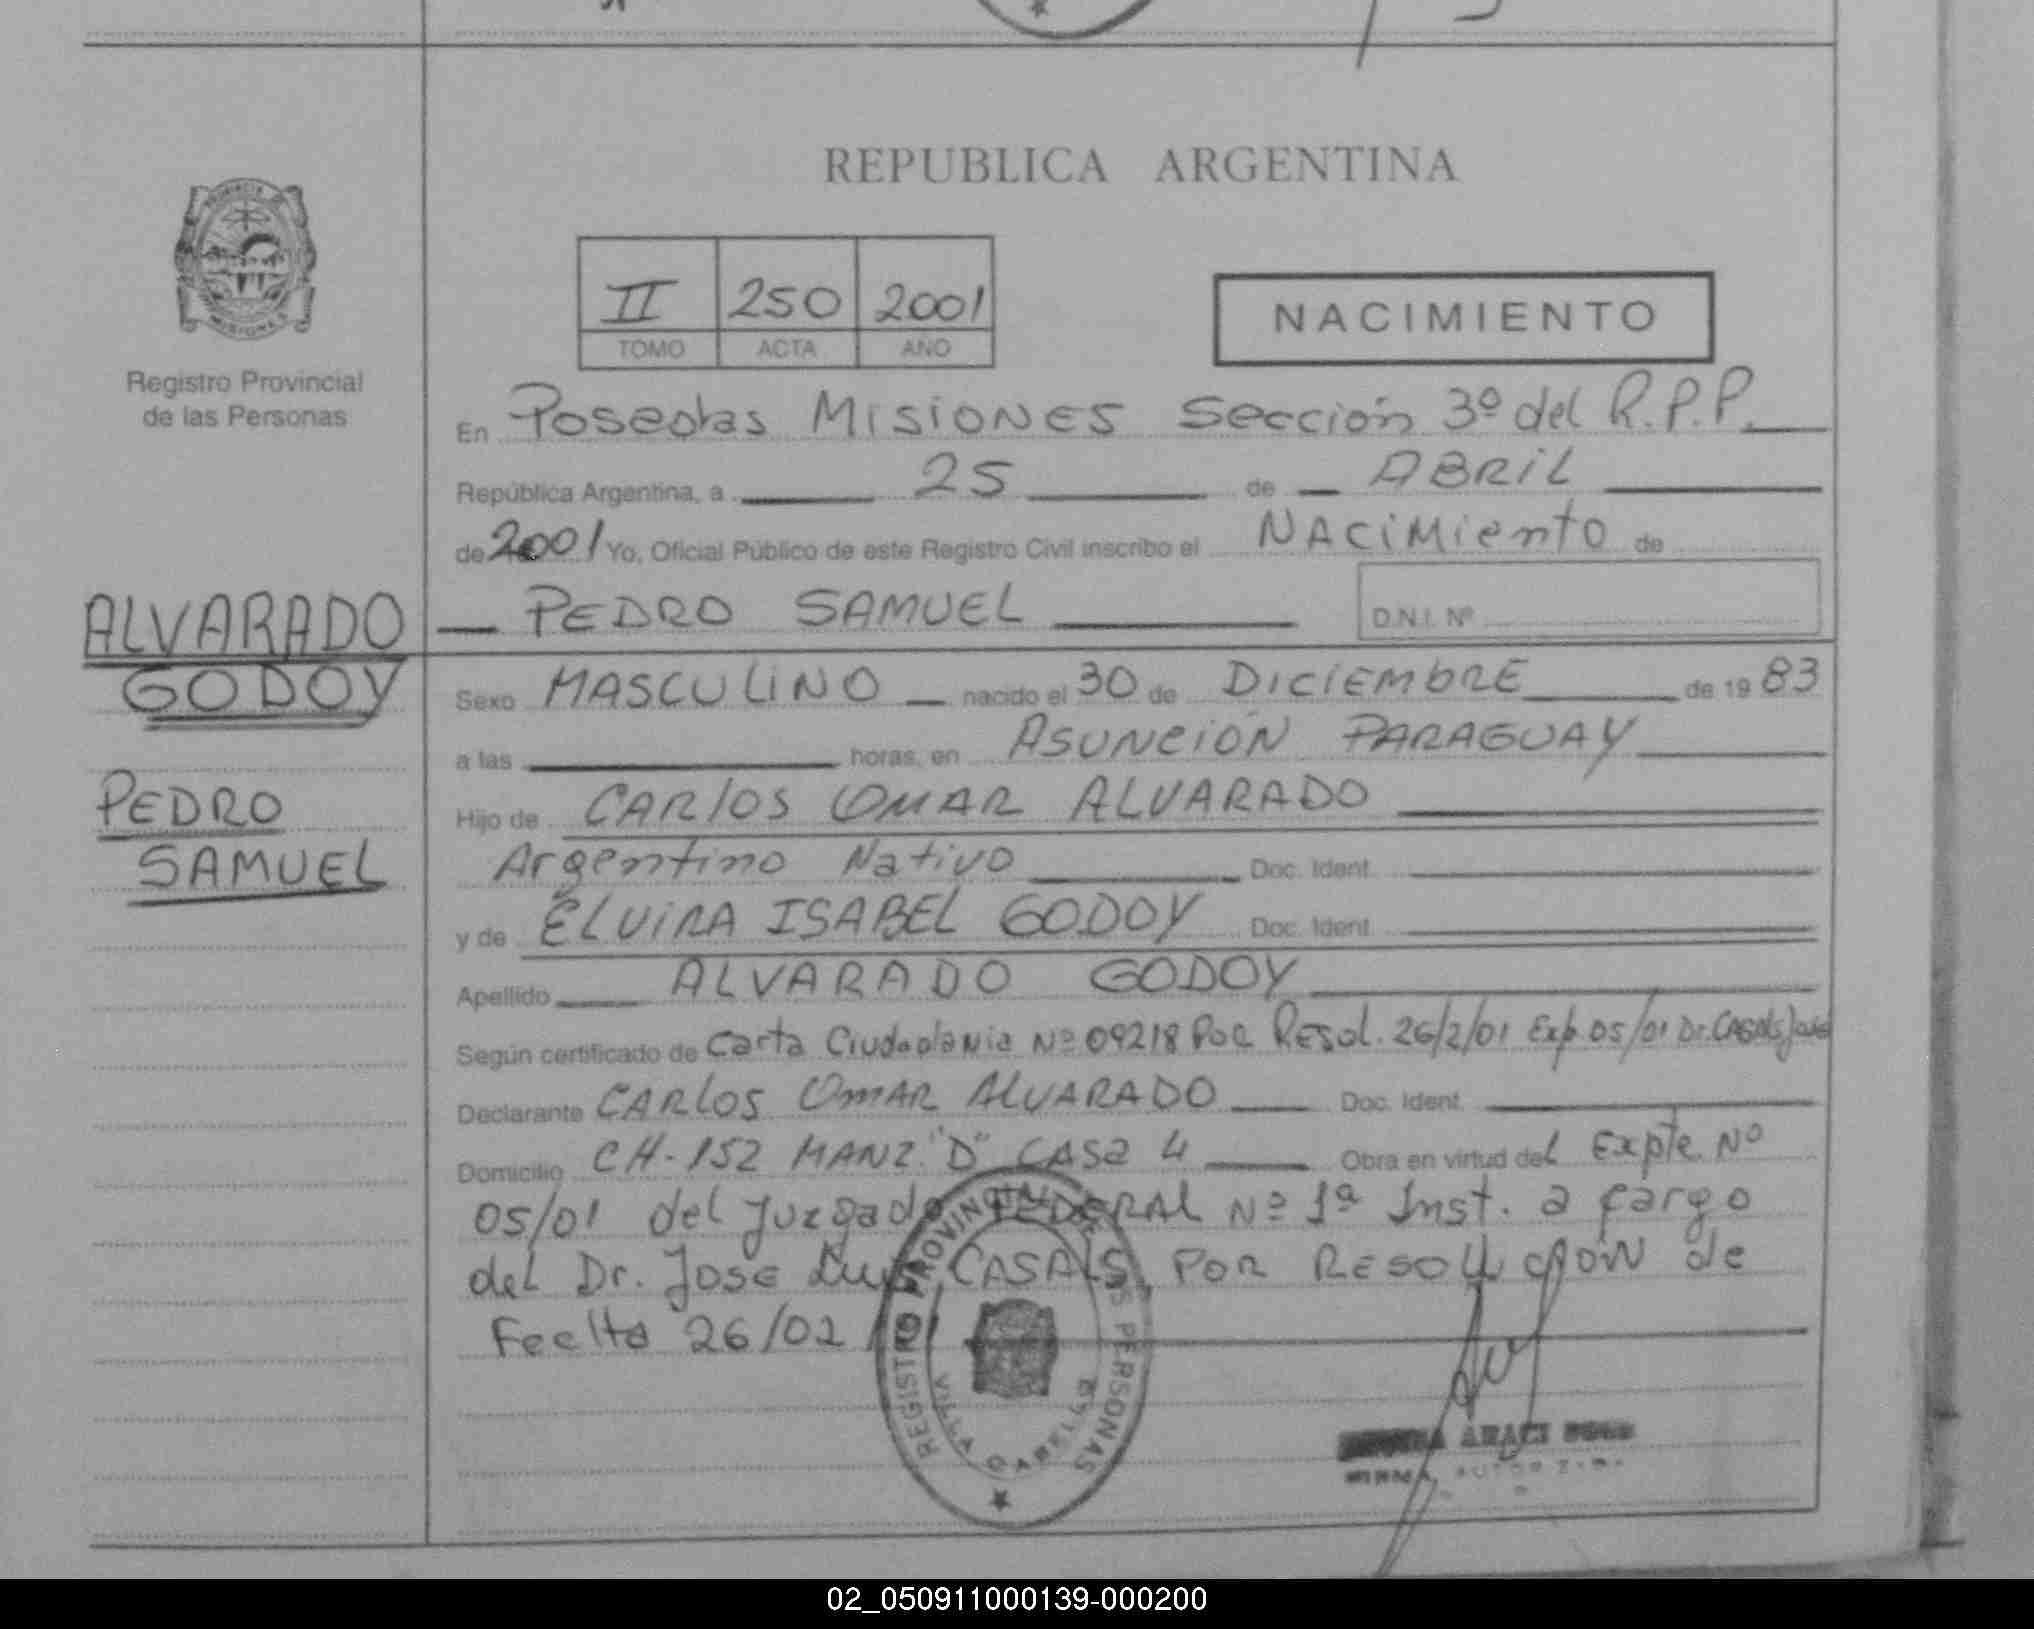 REPUBLICA ARGENTINA
II 250 2001
TOMO ACTA AÑO
NACIMIENTO
Registro Provincial
de las Personas
En Posadas MISIONES Sección 3º del R.P.P.
República Argentina, a 25 de ABRIL
de 2001 Yo, Oficial Público de este Registro Civil inscribo el NACIMIENTO de
PEDRO SAMUEL D.N.I. Nº
ALVARADO
GODOY
PEDRO
SAMUEL
Sexo MASCULINO nacido el 30 de DICIEMBRE de 19 83
a las horas, en ASUNCIÓN PARAGUAY
Hijo de CARLOS OMAR ALVARADO
Argentino Nativo Doc. Ident.
y de ELVIRA ISABEL GODOY Doc. Ident.
Apellido ALVARADO GODOY
Según certificado de Carta Ciudadania Nº 09218 POR RESOL. 26/2/01 Exp. 05/01 Dr. CASALS José
Declarante CARLOS OMAR ALVARADO Doc. Ident.
Domicilio CH-152 MANZ "D" CASA 4 Obra en virtud del Expte. Nº
05/01 del Juzgado FEDERAL Nº 1ª Inst. a cargo
del Dr. JOSE Luis CASALS, POR RESOLUCIÓN de
Fecha 26/02/01
REGISTRO PROVINCIAL DE LAS PERSONAS
VILLA CABELLO
ARACI
02_050911000139-000200